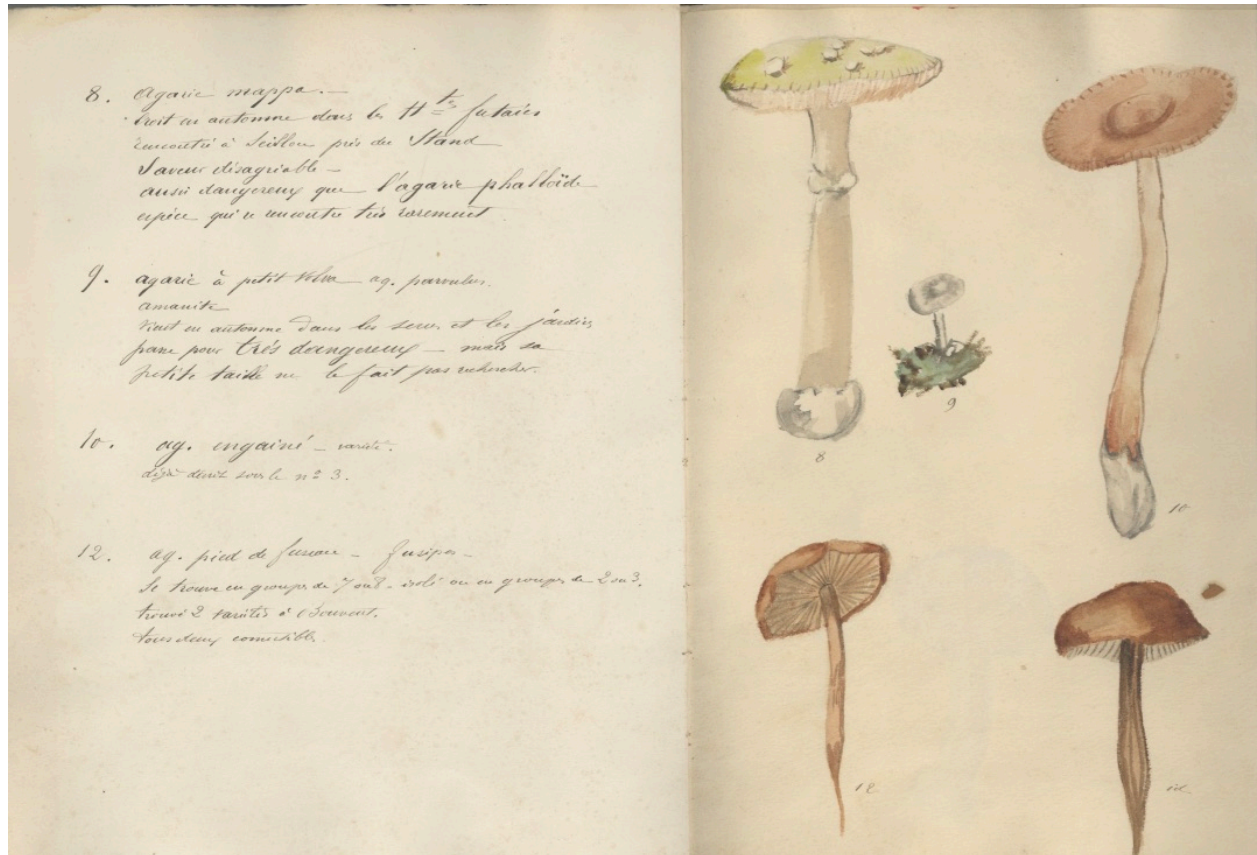 8. Agaric mappa. —
croit en automne dans les Htes futaies
rencontré à Seillon près du Stand
Saveur désagréable —
aussi dangereux que l'agaric phalloïde
espèce qui se rencontre très rarement
9. agaric à petit volva — ag. parvulus.
amanite
vient en automne dans les serres et les jardins
passe pour très dangereux — mais sa
petite taille ne le fait pas rechercher.
10. ag. engainé — variété.
déjà décrit sous le n° 3.
12. ag. pied de fuseau — fusipes —
Se trouve en groupes de 7 ou 8 — isolé ou en groupes de 2 ou 3.
trouvé 2 variétés à Bouvent.
tous deux comestibles.
8
9
10
12
id.